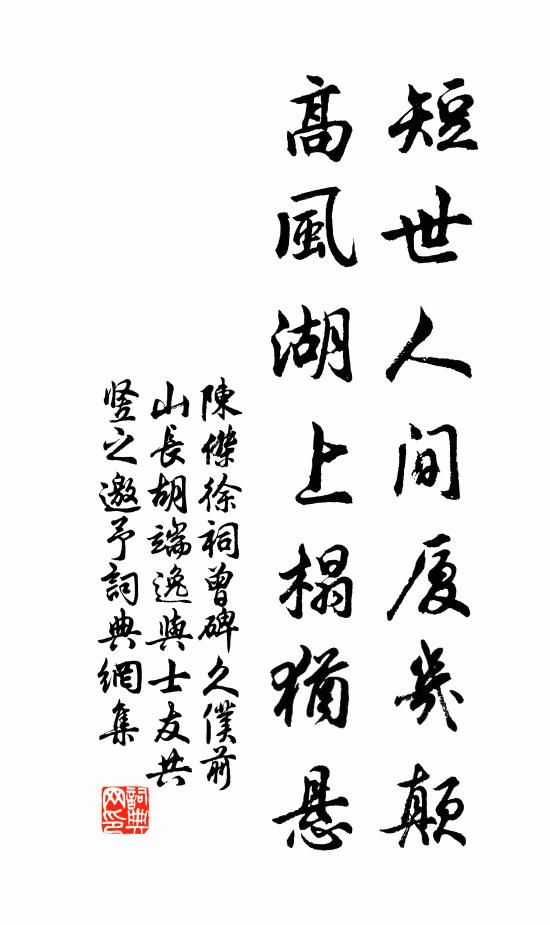 短世人间厦幾顛
高風湖上榻猶懸
陳傑徐祠曾碑久僕前
山長胡端逸與士友共
竖之邀予詞典網集
詞典网印